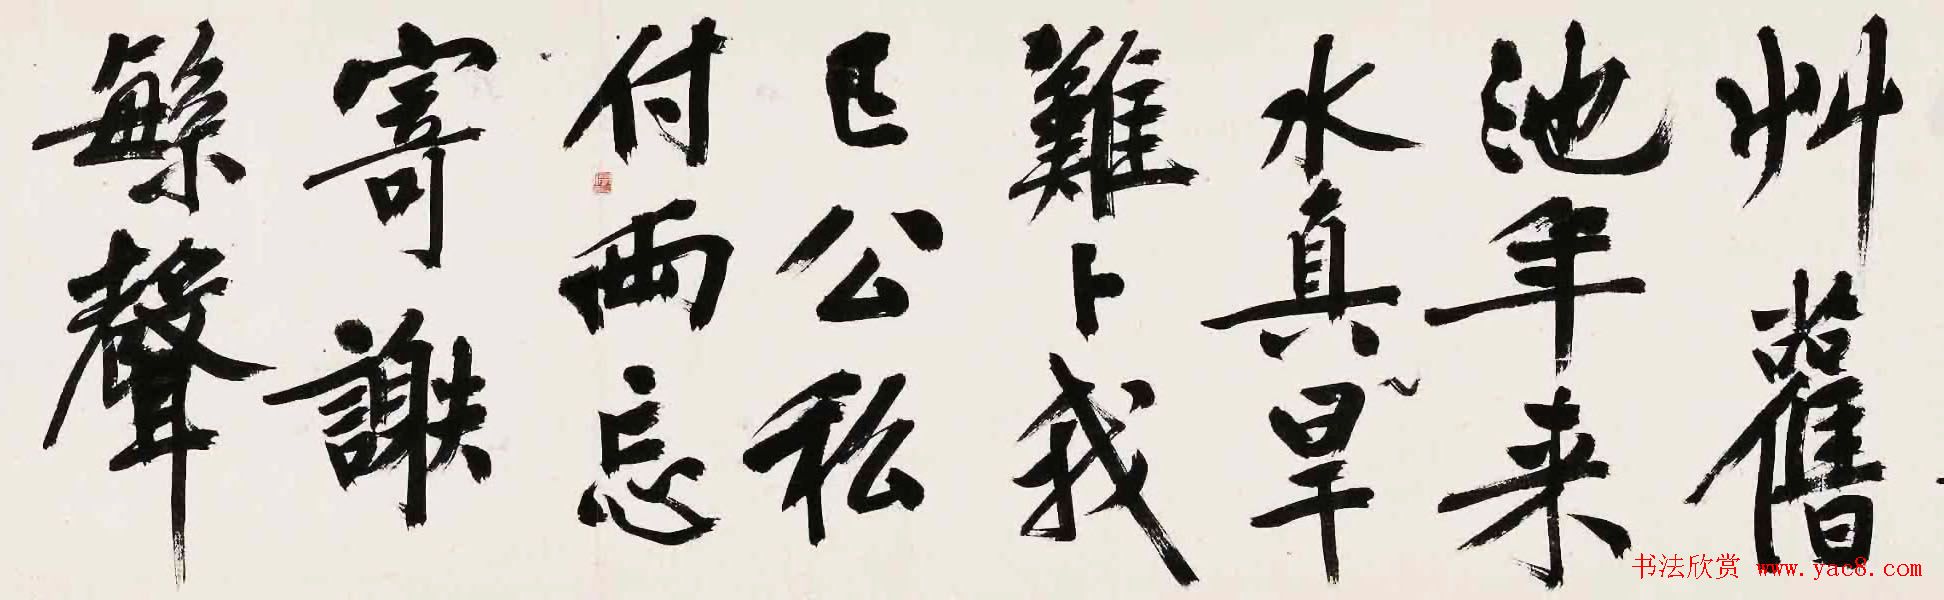 艸舊
池年来
水真旱
難卜我
已公私
付两忘
寄謝
繁聲
书法欣赏 www.yac8.com